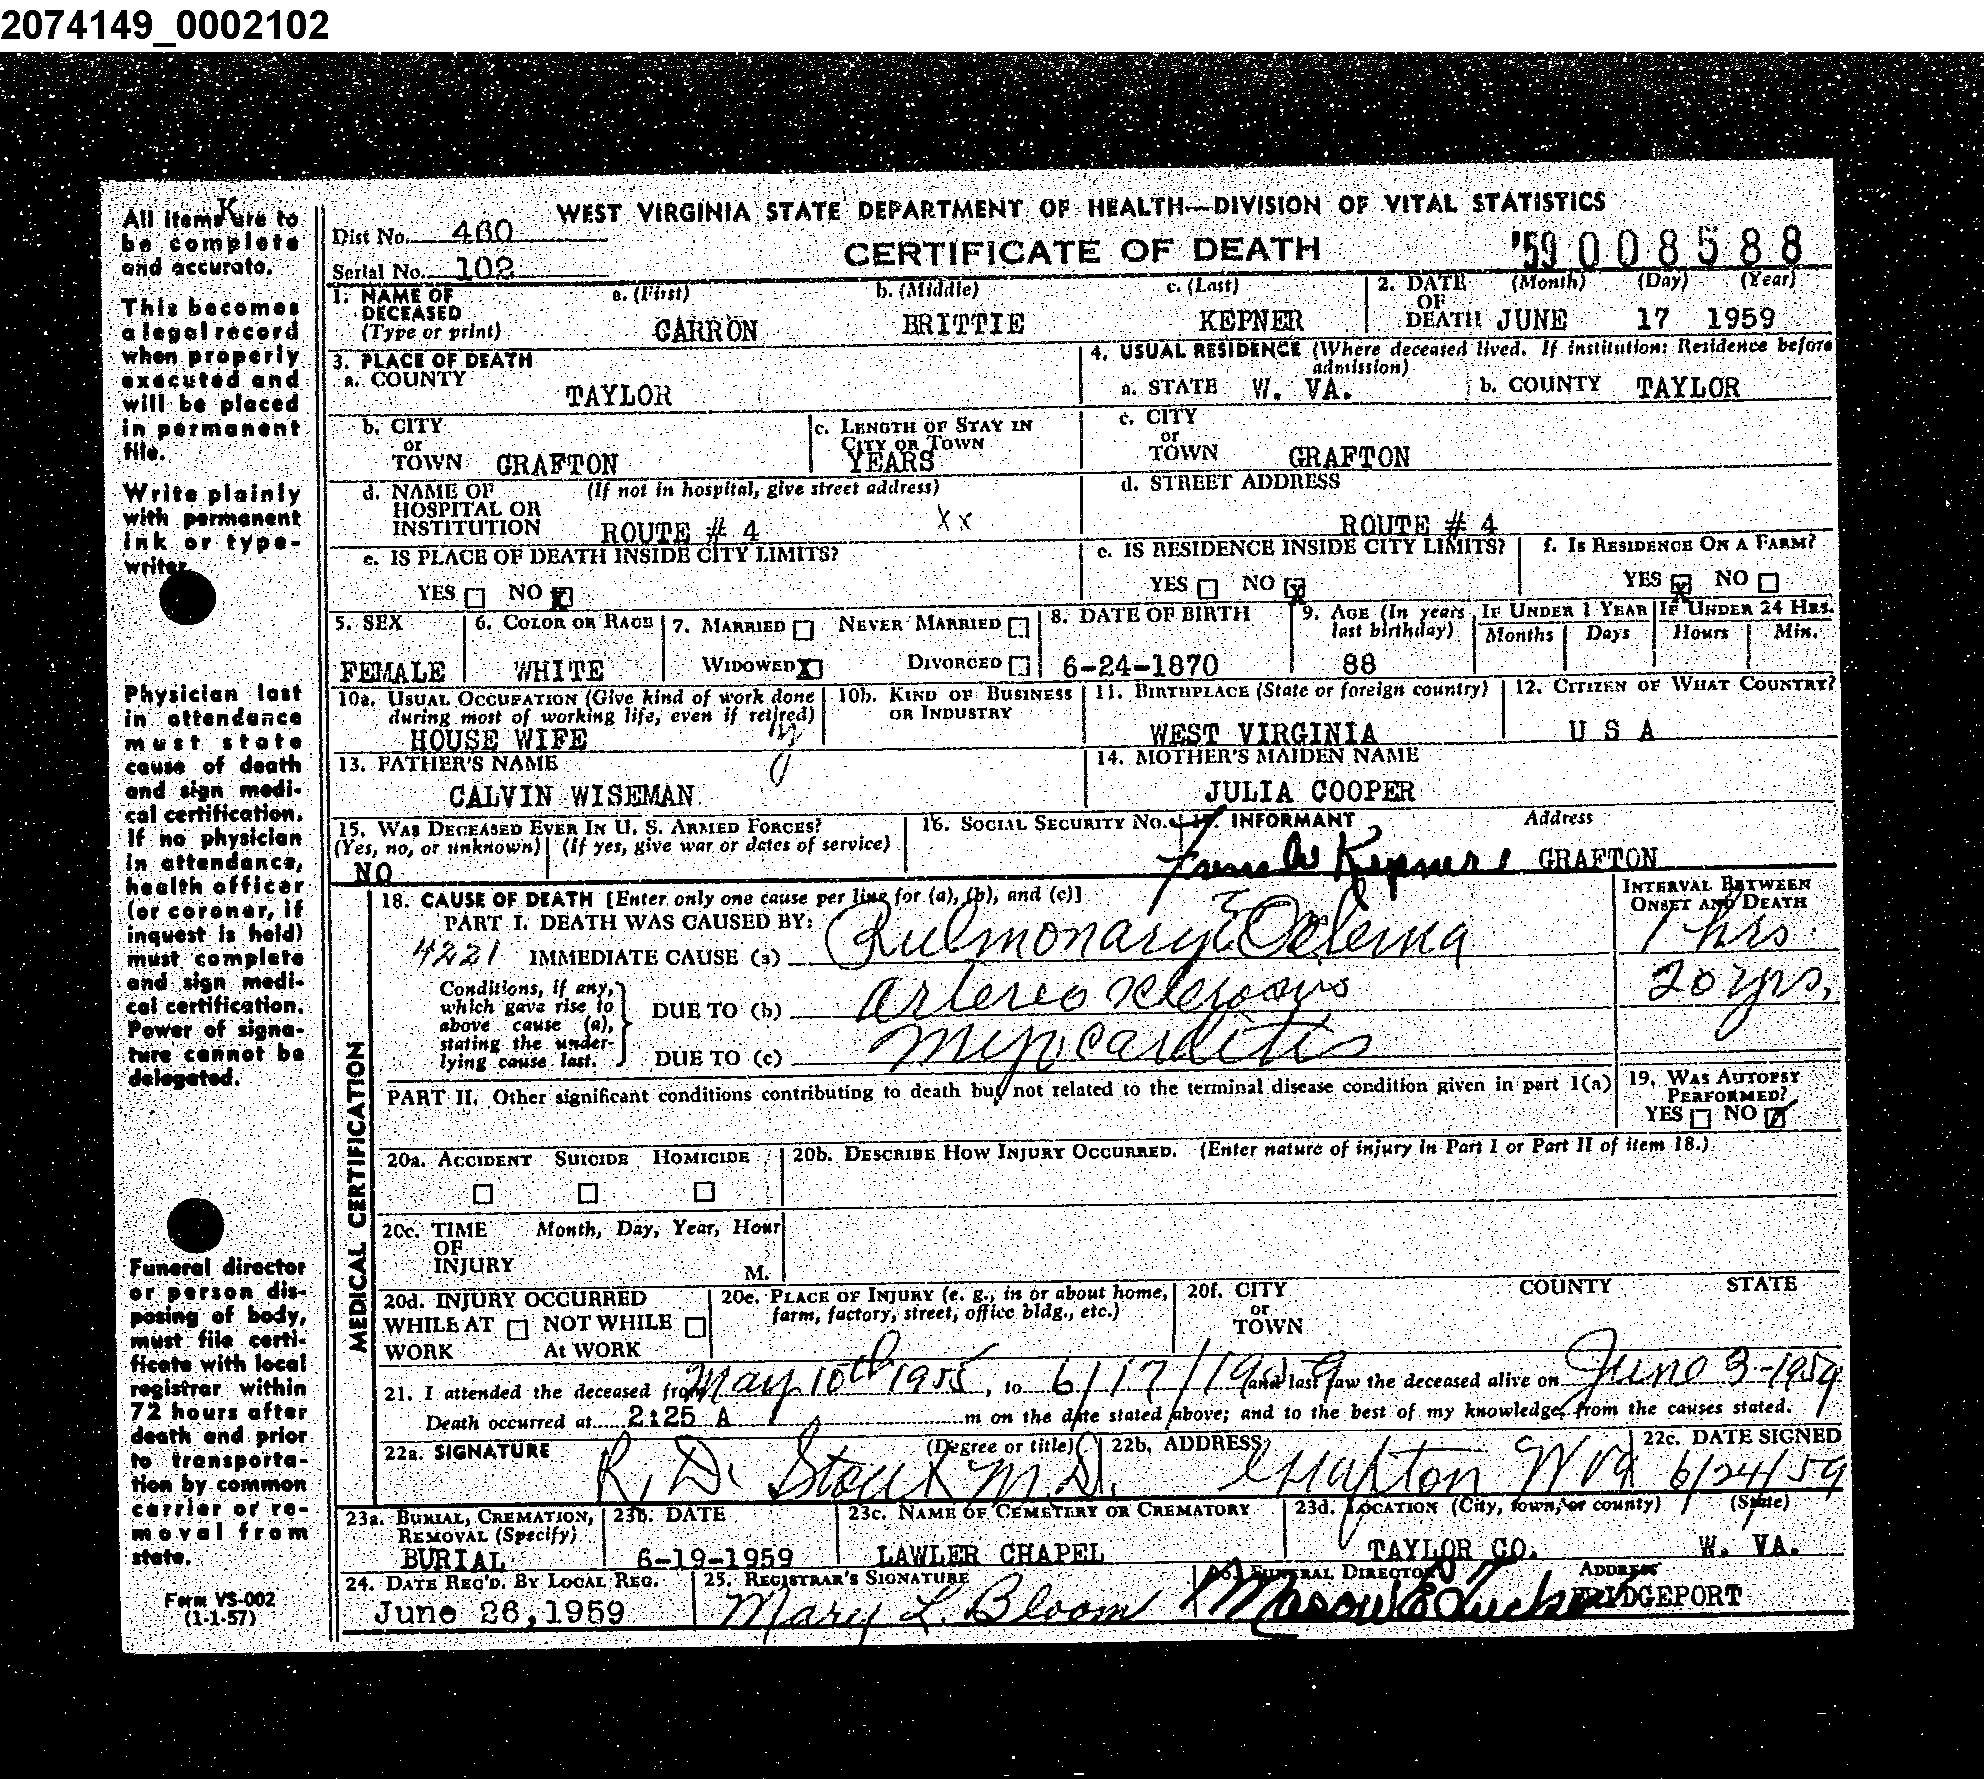 2074149_0002102
All items are to
be complete
and accurate.
This becomes
a legal record
when properly
executed and
will be placed
in permanent
file.
Write plainly
with permanent
ink or type-
writer
Physician last
in attendance
must state
cause of death
and sign medi-
cal certification.
If no physician
in attendance,
health officer
(or coroner, if
inquest is held)
must complete
and sign medi-
cal certification.
Power of signa-
ture cannot be
delegated.
Funeral director
or person dis-
posing of body,
must file certi-
ficate with local
registrar within
72 hours after
death and prior
to transporta-
tion by common
carrier or re-
moval from
state.
Form VS-002
(1-1-57)
K
WEST VIRGINIA STATE DEPARTMENT OF HEALTH—DIVISION OF VITAL STATISTICS
Dist No. 460
CERTIFICATE OF DEATH
'59 008588
Serial No. 102
1. NAME OF DECEASED (Type or print)
a. (First) CARRON
b. (Middle) BRITTIE
c. (Last) KEPNER
2. DATE OF DEATH (Month) (Day) (Year)
JUNE 17 1959
3. PLACE OF DEATH
a. COUNTY TAYLOR
4. USUAL RESIDENCE (Where deceased lived. If institution: Residence before admission)
a. STATE W. VA. b. COUNTY TAYLOR
b. CITY or TOWN GRAFTON
c. LENGTH OF STAY IN CITY OR TOWN YEARS
c. CITY or TOWN GRAFTON
d. NAME OF HOSPITAL OR INSTITUTION (If not in hospital, give street address)
ROUTE # 4 xx
d. STREET ADDRESS
ROUTE # 4
e. IS PLACE OF DEATH INSIDE CITY LIMITS?
YES NO X
e. IS RESIDENCE INSIDE CITY LIMITS?
YES NO X
f. IS RESIDENCE ON A FARM?
YES X NO
5. SEX FEMALE
6. COLOR OR RACE WHITE
7. MARRIED NEVER MARRIED
WIDOWED X DIVORCED
8. DATE OF BIRTH 6-24-1870
9. AGE (In years last birthday) 88
IF UNDER 1 YEAR Months Days
IF UNDER 24 HRS. Hours Min.
10a. USUAL OCCUPATION (Give kind of work done during most of working life, even if retired)
HOUSE WIFE
10b. KIND OF BUSINESS OR INDUSTRY
11. BIRTHPLACE (State or foreign country)
WEST VIRGINIA
12. CITIZEN OF WHAT COUNTRY?
U S A
13. FATHER'S NAME
CALVIN WISEMAN
14. MOTHER'S MAIDEN NAME
JULIA COOPER
15. WAS DECEASED EVER IN U. S. ARMED FORCES?
(Yes, no, or unknown) (If yes, give war or dates of service)
NO
16. SOCIAL SECURITY No.
INFORMANT Address
Kepner GRAFTON
MEDICAL CERTIFICATION
18. CAUSE OF DEATH [Enter only one cause per line for (a), (b), and (c)]
INTERVAL BETWEEN ONSET AND DEATH
PART I. DEATH WAS CAUSED BY:
4221 IMMEDIATE CAUSE (a) Pulmonary Oedema 1 hrs
Conditions, if any, which gave rise to above cause (a), stating the under-lying cause last.
DUE TO (b) arterio sclerosis 20 yrs,
DUE TO (c) myocarditis
PART II. Other significant conditions contributing to death but not related to the terminal disease condition given in part I(a)
19. WAS AUTOPSY PERFORMED?
YES NO
20a. ACCIDENT SUICIDE HOMICIDE
20b. DESCRIBE HOW INJURY OCCURRED. (Enter nature of injury in Part I or Part II of item 18.)
20c. TIME OF INJURY Month, Day, Year, Hour
M.
20d. INJURY OCCURRED
WHILE AT WORK NOT WHILE At WORK
20e. PLACE OF INJURY (e. g., in or about home, farm, factory, street, office bldg., etc.)
20f. CITY or TOWN COUNTY STATE
21. I attended the deceased from May 10th 1955, to 6/17/1959 and last saw the deceased alive on June 3-1959
Death occurred at 2:25 A m on the date stated above; and to the best of my knowledge, from the causes stated.
22a. SIGNATURE (Degree or title)
R. D. Stout M.D.
22b. ADDRESS
Grafton W Va
22c. DATE SIGNED
6/24/59
23a. BURIAL, CREMATION, REMOVAL (Specify)
BURIAL
23b. DATE
6-19-1959
23c. NAME OF CEMETERY OR CREMATORY
LAWLER CHAPEL
23d. LOCATION (City, town, or county) (State)
TAYLOR CO. W. VA.
24. DATE REC'D. BY LOCAL REG.
June 26, 1959
25. REGISTRAR'S SIGNATURE
Mary L. Bloom
FUNERAL DIRECTOR ADDRESS
Mason E Tucker BRIDGEPORT